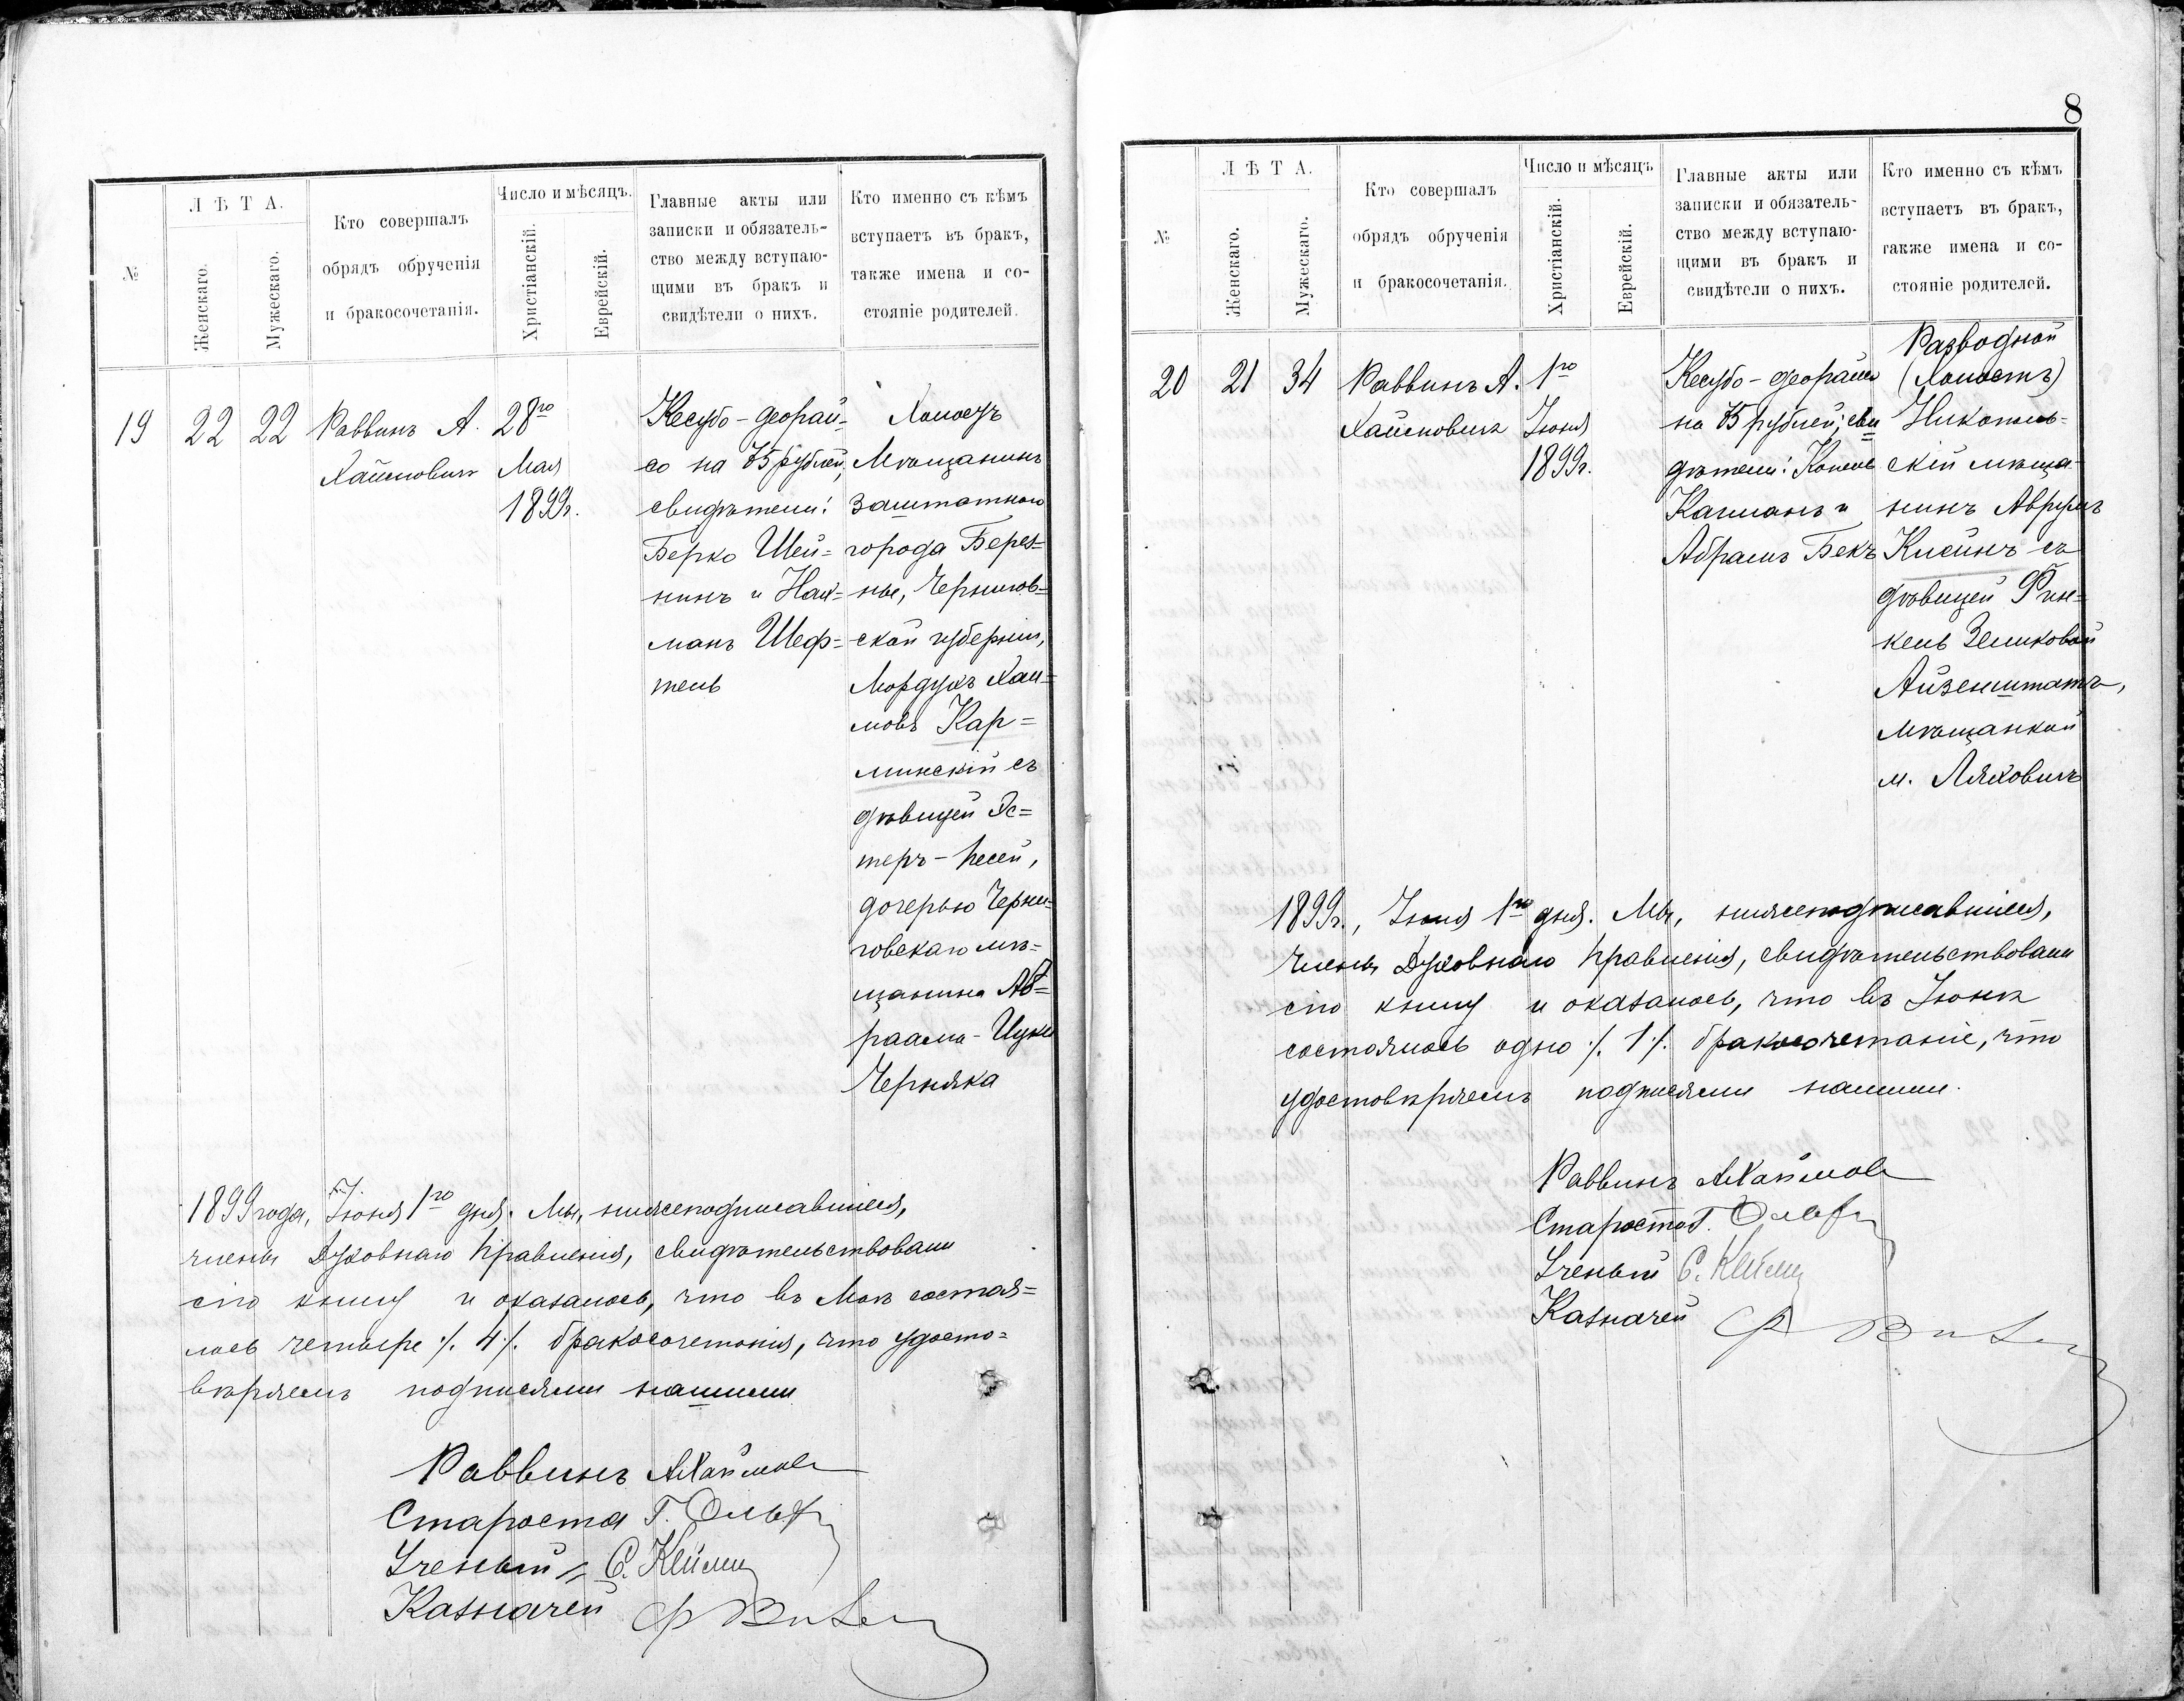 №
Л Ѣ Т А.
Женскаго.
Мужескаго.
Кто совершалъ
обрядъ обрученія
и бракосочетанія.
Число и мѣсяцъ.
Христіанскій.
Еврейскій.
Главные акты или
записки и обязатель-
ство между вступаю-
щими въ бракъ и
свидѣтели о нихъ.
Кто именно съ кѣмъ
вступаетъ въ бракъ,
также имена и со-
стояніе родителей.
19
22
22
Раввинъ А.
Хаймовичъ
28го
Мая
1899г.
Кесубо-деорай-
со на 75 рублей,
свидѣтели:
Берко Шей=
нинъ и Нах=
манъ Шеф=
тель
Холостъ
Мѣщанинъ
заштатнаго
города Берез=
ны, Чернигов=
ской губерніи,
Мордухъ Хаи=
мовъ Кар=
минскій съ
дѣвицей Эс=
теръ-Песей,
дочерью Черни=
говскаго мѣ=
щанина Аб=
раама-Ицки
Черняка
1899 года, Іюня 1го дня. Мы, нижеподписавшіеся,
члены Духовнаго Правленія, свидѣтельствовали
сію книгу и оказалось, что въ Маѣ состоя=
лось четыре ./. 4 ./. бракосочетанія, что удосто=
вѣряемъ подписями нашими
Раввинъ АХаймов
Староста Г.
Ученый С.
Казначей
8
№
Л Ѣ Т А.
Женскаго.
Мужескаго.
Кто совершалъ
обрядъ обрученія
и бракосочетанія.
Число и мѣсяцъ
Христіанскій.
Еврейскій.
Главные акты или
записки и обязатель-
ство между вступаю-
щими въ бракъ и
свидѣтели о нихъ.
Кто именно съ кѣмъ
вступаетъ въ бракъ,
также имена и со-
стояніе родителей.
20
21
34
Раввинъ А.
Хаймовичъ
1го
Іюня
1899г.
Кесубо-деорайсо
на 75 рублей; сви
дѣтели:
Каганъ и
Абрамъ Бекъ
Разводной
(Холостъ)
Никополь=
скій мѣща-
нинъ Аврумъ
Клейнъ съ
дѣвицей Фин=
кель Зеликовой
Айзенштатъ,
мѣщанкой
м. Ляховичъ
1899г., Іюня 1го дня. Мы, нижеподписавшіеся,
члены Духовнаго Правленія, свидѣтельствовали
сію книгу и оказалось, что въ Іюнѣ
состоялось одно ./. 1 ./. бракосочетаніе, что
удостовѣряемъ подписями нашими.
Раввинъ АХаймов
Староста Г.
Ученый С.
Казначей